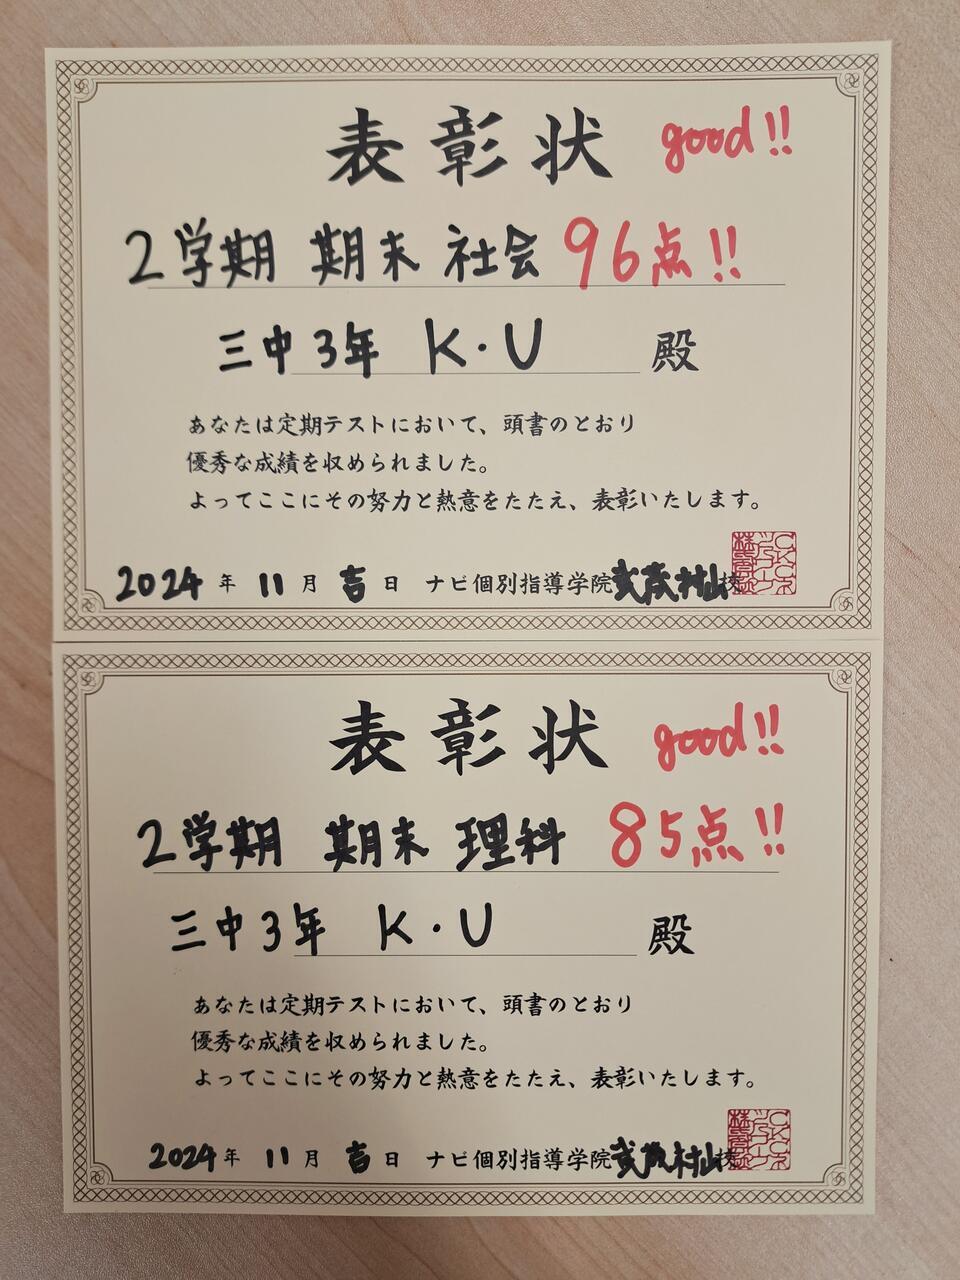 表彰状 good!!
2学期 期末 社会 96点!!
三中3年 K・U 殿
あなたは定期テストにおいて、頭書のとおり
優秀な成績を収められました。
よってここにその努力と熱意をたたえ、表彰いたします。
2024年 11月 吉日 ナビ個別指導学院武蔵村山校
表彰状 good!!
2学期 期末 理科 85点!!
三中3年 K・U 殿
あなたは定期テストにおいて、頭書のとおり
優秀な成績を収められました。
よってここにその努力と熱意をたたえ、表彰いたします。
2024年 11月 吉日 ナビ個別指導学院武蔵村山校